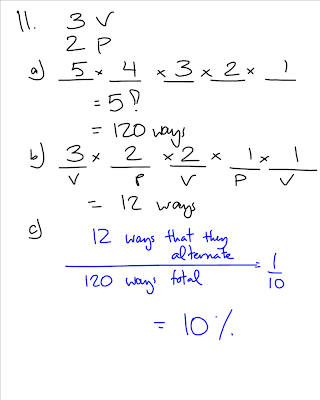 11. 3 V
2 P
a) 5 × 4 × 3 × 2 × 1
= 5!
= 120 ways
b) 3 × 2 × 2 × 1 × 1
V P V P V
= 12 ways
c)
12 ways that they
alternate
120 ways total
= 1/10
= 10%